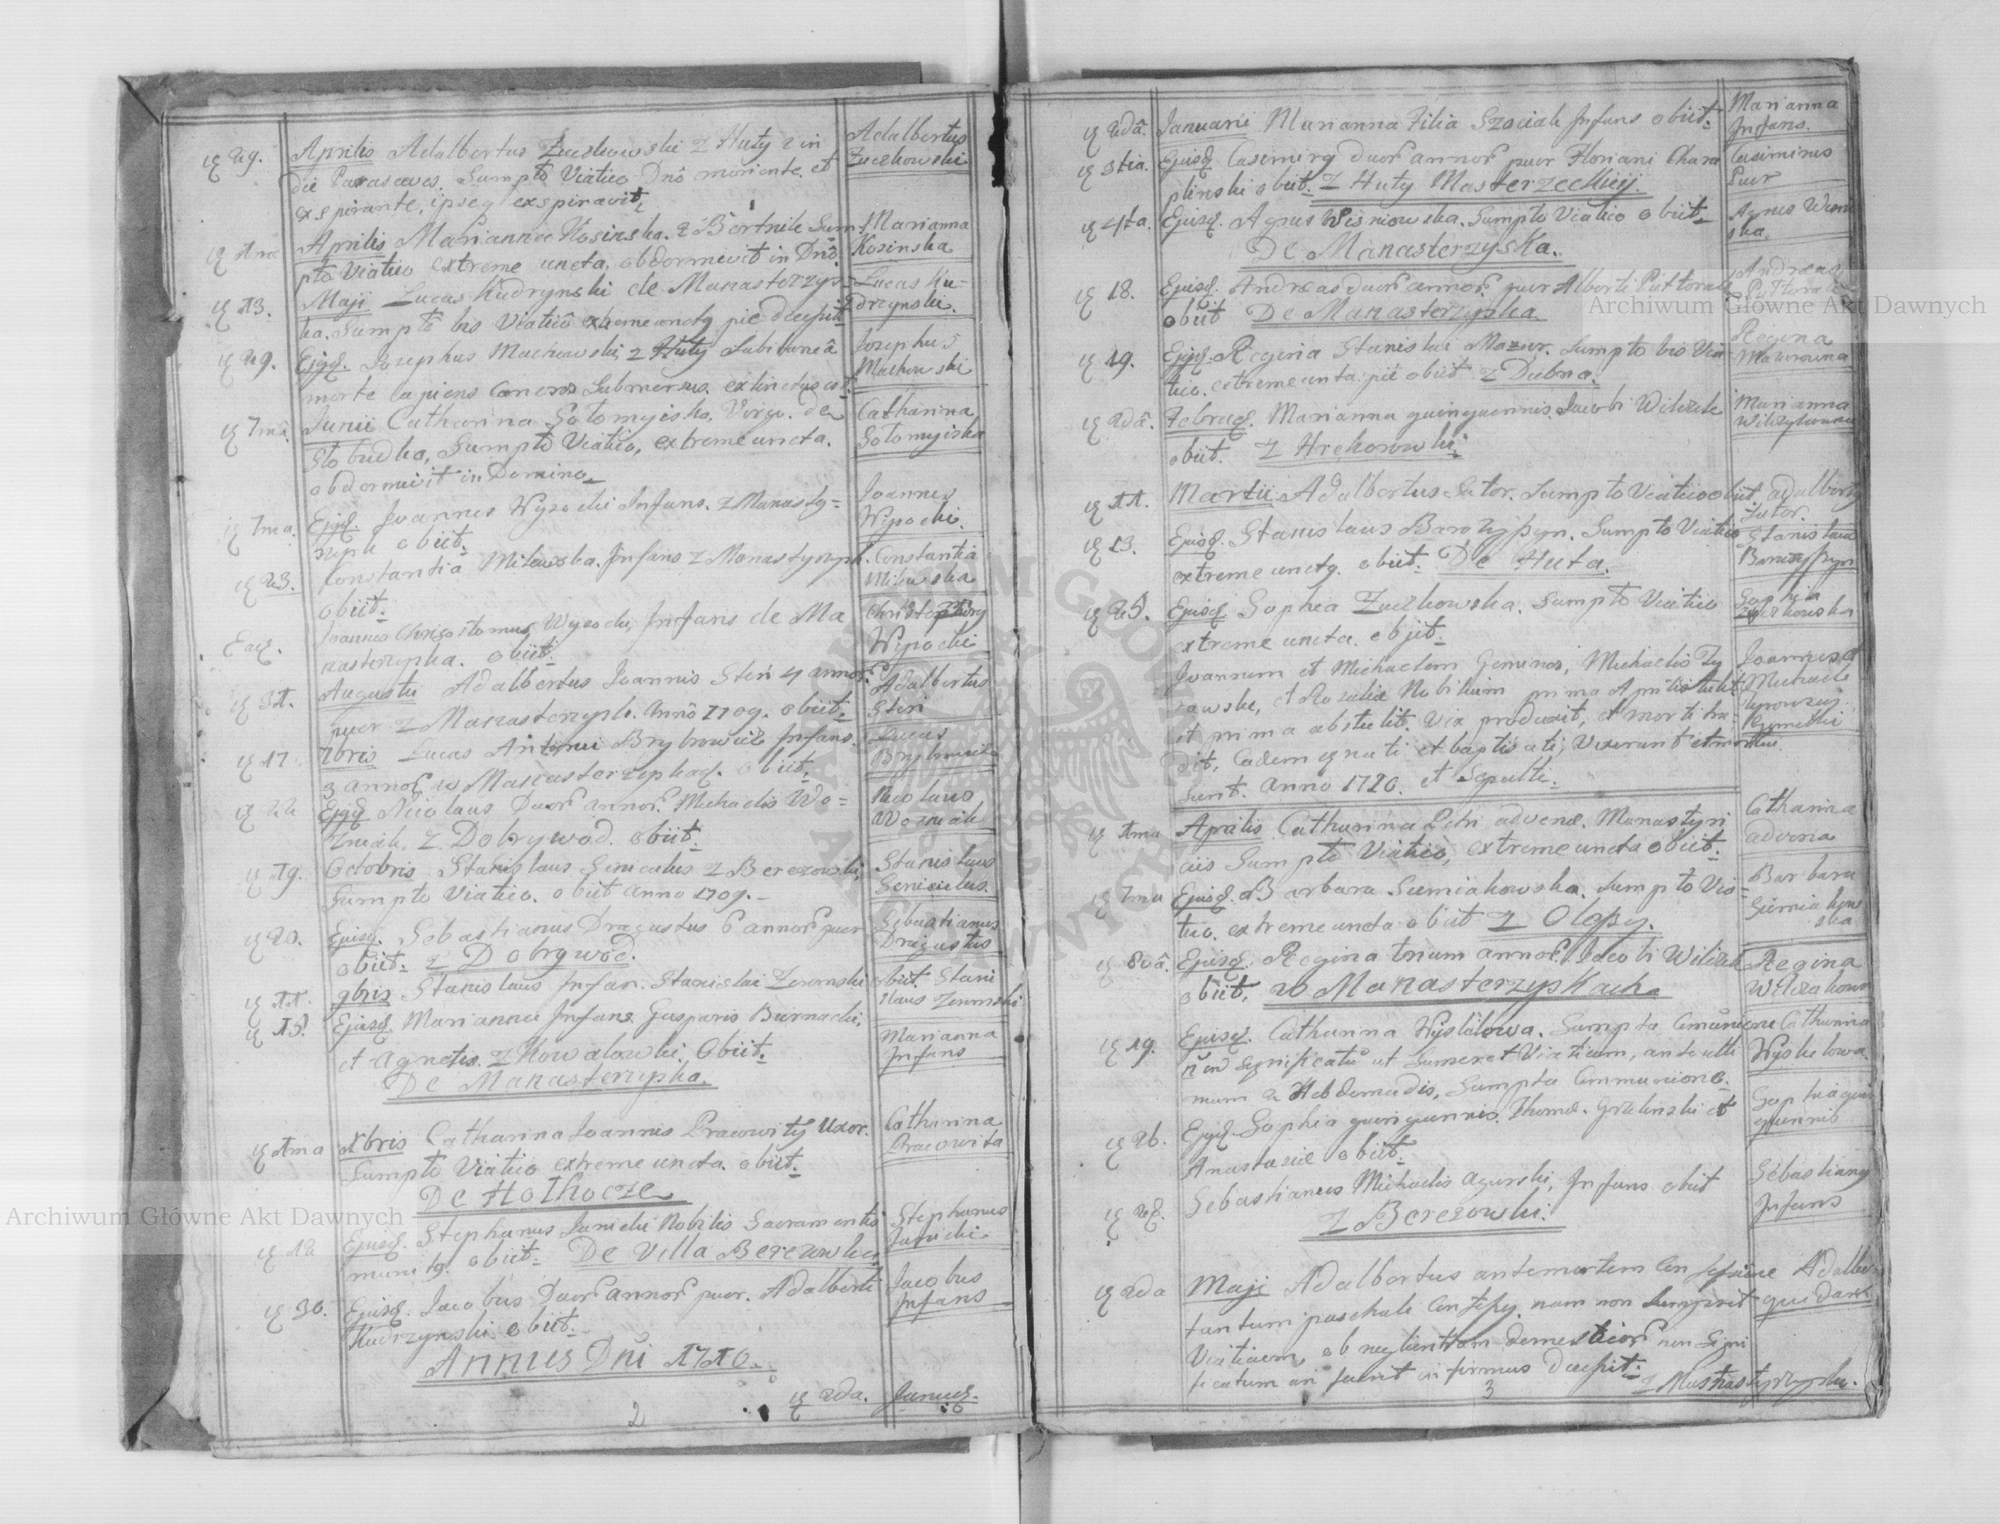 29. Aprilis Adalbertus Zuczkowski z Huty 2 in
die Parasceves. Sumpto Viatico Dnō moriente, et
exspirante, ipseq exspiravit.
Adalbertus
Zuczkowski
Aprilis Marianna Kosinska. z Bortnik Sum
pto Viatico extreme uncta, obdormivit in Dnō.
Marianna
Kosinska
13. Maji Lucas Kudrynski de Manasterzys=
ka. Sumpto bis Viaticō extreme
Lucas Ku=
drzynski.
29. Ejqꝫ. Josephus Machowski, z Huty
morte
Josephus
Machowski
7ma. Junii Catharina Gotomyiska, Virgo. de
Stobudka, Sumpto Viatico, extreme uncta.
obdormivit in Domino
Catharina
Gotomyiska
7ma. Ejqꝫ. Joannes Wysocki Infans. z Manasty=
rzysk obiit.
Joannes
Wysocki.
23. Constantia Milewska. Infans z Monastyrzysk.
obiit.
Constantia
Milewska
Eaq. Joannes Chrizostomus Wysocki, Infans de Ma
nasterzyska. obiit.
Wysocki
31. Augusti Adalbertus Joannis Steri 4 annor.
puer z Manasterzysk. Annō 1709. obiit.
Adalbertus
Steri
17. 7bris Lucas Antonii Brybrowicz Infans.
3 annor w Manasterzyskaq. obiit.
Lucas
22 Ejqꝫ Nicolaus Duor annor. Michaelis Wo=
zniak, z Dobrywod. obiit.
Nicolaus
Wozniak
19. Octobris Stanislaus Geniculus z Berezowki,
Sumpto Viatico. obiit anno 1709.
Stanislaus
Geniculus
20. Ejusq. Sebastianus Dragustus 6 annor puer
obiit. z Dobrywod.
Sebastianus
Dragustus
11. 9bris Stanislaus Infan. Stanislai Zeromski obiit. Stani
slaus Zeromski
15. Ejusq. Marianna Infans Gasparis Biernacki,
et Agnetis. z Kowalowki. Obiit.
Marianna
Infans
De Manasterzyska.
1ma Xbris Catharina Joannis Pracowity Uxor.
Sumpto Viatico extreme uncta. obiit.
Catharina
Pracowita
De Hothocze
12 Ejusq. Stephanus Janicki Nobilis Sacramentis
munitq. obiit. De Villa Berezowka
Stephanus
Janicki.
30. Ejusq. Jacobus Duor annor puer. Adalberti
Kudrzynski obiit.
Jacobus
Infans
Annus Dni 1710.
2da. Januq.
2
2dâ. Januarii Marianna Filia Szociak Infans obiit.
Marianna
Infans.
3tia. Ejusq. Casimirq duor annor puer Floriani Chara
plinski obiit. z Huty Masterzeckiij.
Casimirus
Puer
4ta. Ejusq. Agnes Wisniowska. Sumpto Viatico obiit.
De Manasterzyska.
18. Ejusq. Andreas duor annor. puer Alberti Puttorak
obiit De Manasterzyska
Andreas
19. Ejqꝫ. Regina Stanislai Mazur. Sumpto bis Via
tico. extreme uncta pie obiit z Dubna.
Regina
Mazurowna
2dâ. Februq. Marianna quinquennis Jacobi Wilczek
obiit. z Hrehorowki.
Marianna
11. Martii Adalbertus Sutor. Sumpto Viatico obiit. adalbertq
Sutor.
13. Ejusq. Stanislaus Barczyszyn. Sumpto Viatico
extreme unctq. obiit. De Huta.
Stanislaus
Barczyszyn
25. Ejusq. Sophia Zuczkowska. Sumpto Viatico
extreme uncta. objit.
Sophia
Zuczkowska
Joannem et Michaelem Geminos, Michaelis Ty
rowski, et Rozaliæ Nobilium prima Aprilis tulit
et prima abstulit. Vix produxit, et morti tra=
dit, Eadem q nati et baptisati; Vixerunt et mortui
sunt. Anno 1710. et Sepulti.
Joannes et
Michael
1ma Aprilis Catharina Petri advenæ. Manastyri
ciis Sumpto Viatico, extreme uncta obiit.
Catharina
advena
7ma Ejusq. Barbara Siemiakowska. Sumpto Via=
tico. extreme uncta obiit z Olessy.
Barbara
Siemiakow
ska
8vâ. Ejusq. Regina trium annor. Jacobi Wilczek
obiit. w Manasterzyskach
Regina
Wilczkowna
19. Ejusq. Catharina Wyslutowa. Sumpta Comūnione
significatū ut sumeret Viaticum, ante ulti
mum 2 Hebdomadis, Sumpta Communione.
Catharina
26. Ejqꝫ Sophia quinquennis. Thomæ. Grzelinski et
Anastasiæ obiit.
Sophia quin
quennis
28. Sebastianus Michaelis Agurski, Infans obiit
z Berezowki.
Sebastianq
Infans
2da Maji Adalbertus ante mortem Confessione
tantum paschali Contentq. nam non sumpsit
Viaticum, ob negligentiam domesticor non signi
ficatum an fuerit infirmus Decessit.
Adalber
quidam
3